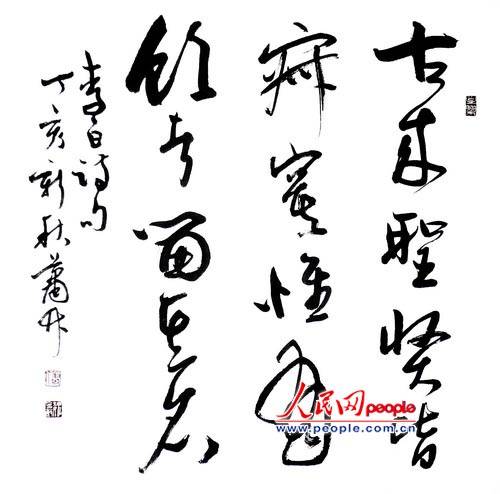 古来聖賢皆
寂寞惟有
飲者留其名
李白詩句
丁亥新秋蕭
人民网people
www.people.com.cn